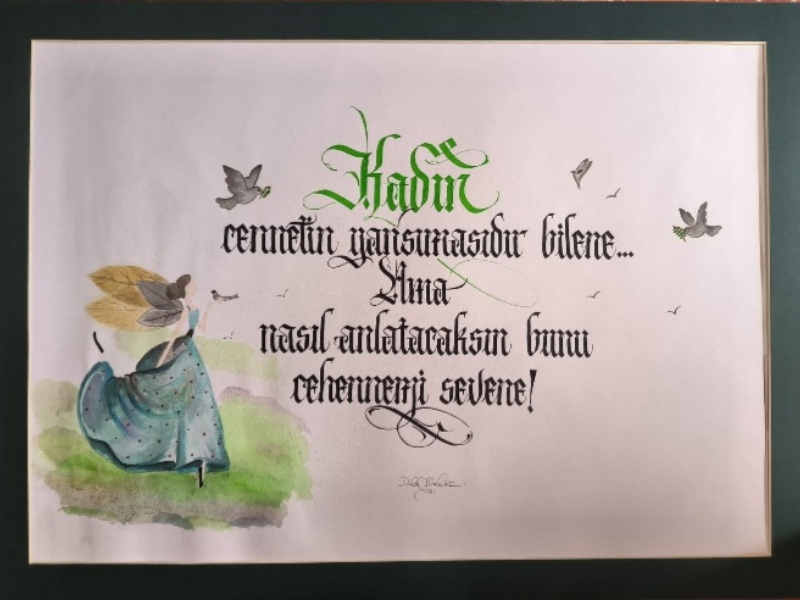 Kadın
cennetin yansımasıdır bilene...
Ama
nasıl anlatacaksın bunu
cehennemi sevene!